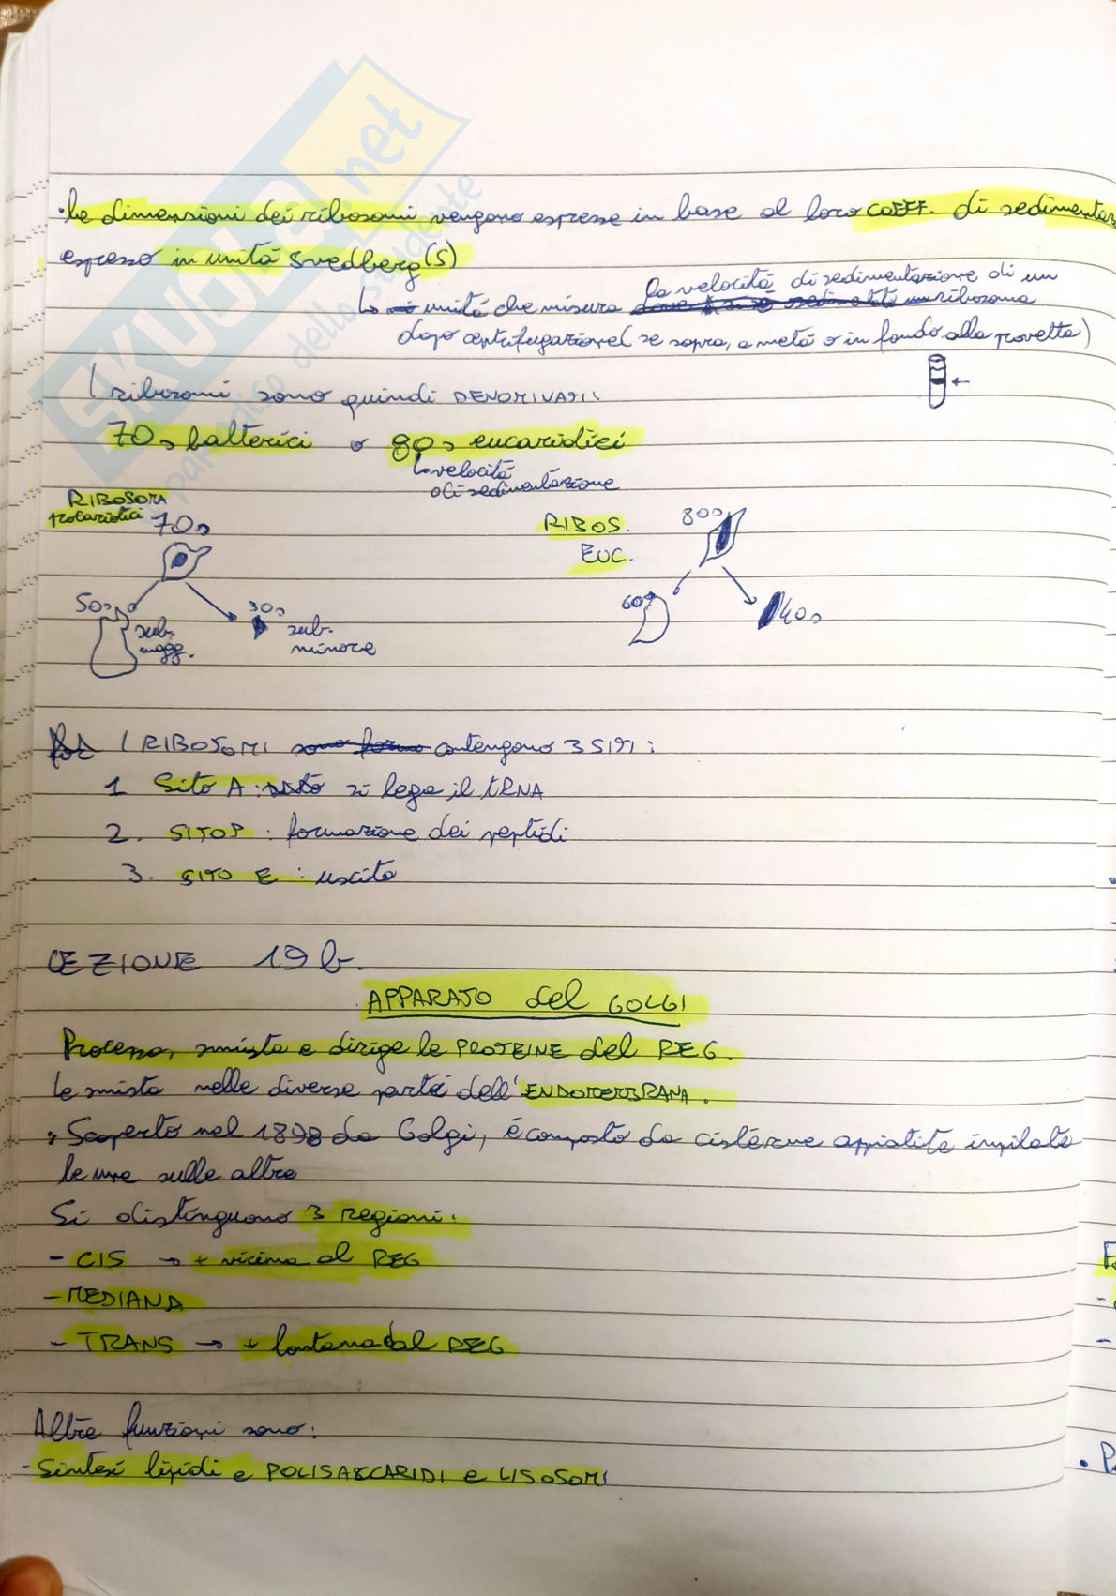 SKUOLA.net
paradiso dello studente
• Le dimensioni dei ribosomi vengono espresse in base al loro COEFF. di sedimentaz
espresso in unità Svedberg (S)
unità che misura la velocità di sedimentazione di un ribosoma
dopo centrifugazione (se sopra, a metà o in fondo alla provetta)
I ribosomi sono quindi DENOMINATI:
70s batterici o 80s eucariotici
velocità
di sedimentazione
RIBOSOMI
procariotici 70s
RIBOS. 80s
EUC.
50s 30s
sub. magg. sub. minore
60s 40s
I RIBOSOMI contengono 3 SITI:
1 Sito A: si lega il tRNA
2. SITO P: formazione dei peptidi
3. SITO E: uscita
LEZIONE 19 b
APPARATO del GOLGI
Processa, smista e dirige le PROTEINE del REG.
Le smista nelle diverse parti dell'ENDOMEMBRANA.
Scoperto nel 1898 da Golgi, è composto da cisterne appiattite impilate
le une sulle altre
Si distinguono 3 regioni:
- CIS → + vicina al REG
- MEDIANA
- TRANS → + lontana dal REG
Altre funzioni sono:
- Sintesi lipidi e POLISACCARIDI e LISOSOMI